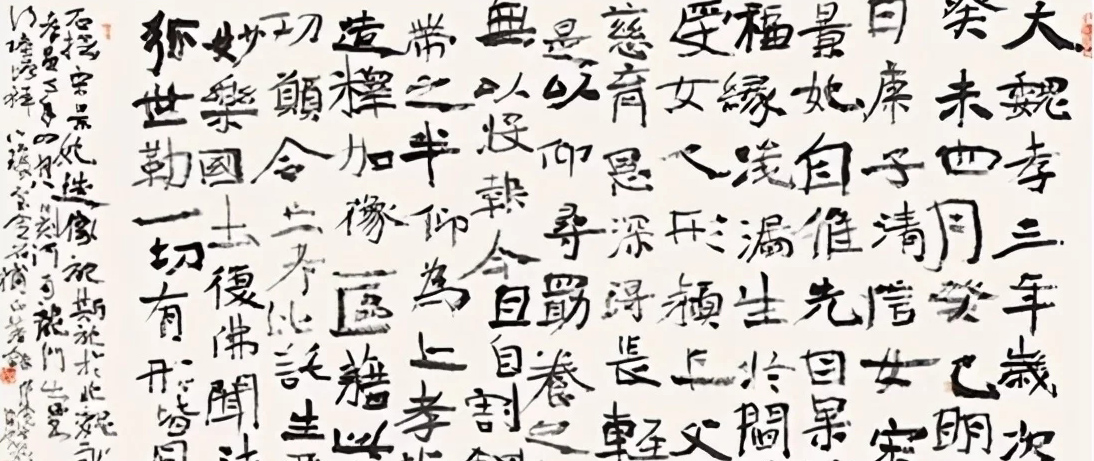 大魏孝三年歲次
癸未四月癸巳明
日庚子清信女宋
景妃自惟先因果
福緣浅漏生於閻
受女人形頼上父
慈育恩深得長軽
是以仰尋勗養之
無以投報今且自割
帶之半仰為亡孝
造釋加像一區藉以
功願令亡考比託生
妙樂國土復佛聞法
弥世勒一切有形皆同
宋景妃造像記 於北魏
孝昌三年四月八日刻河南龍門山壁